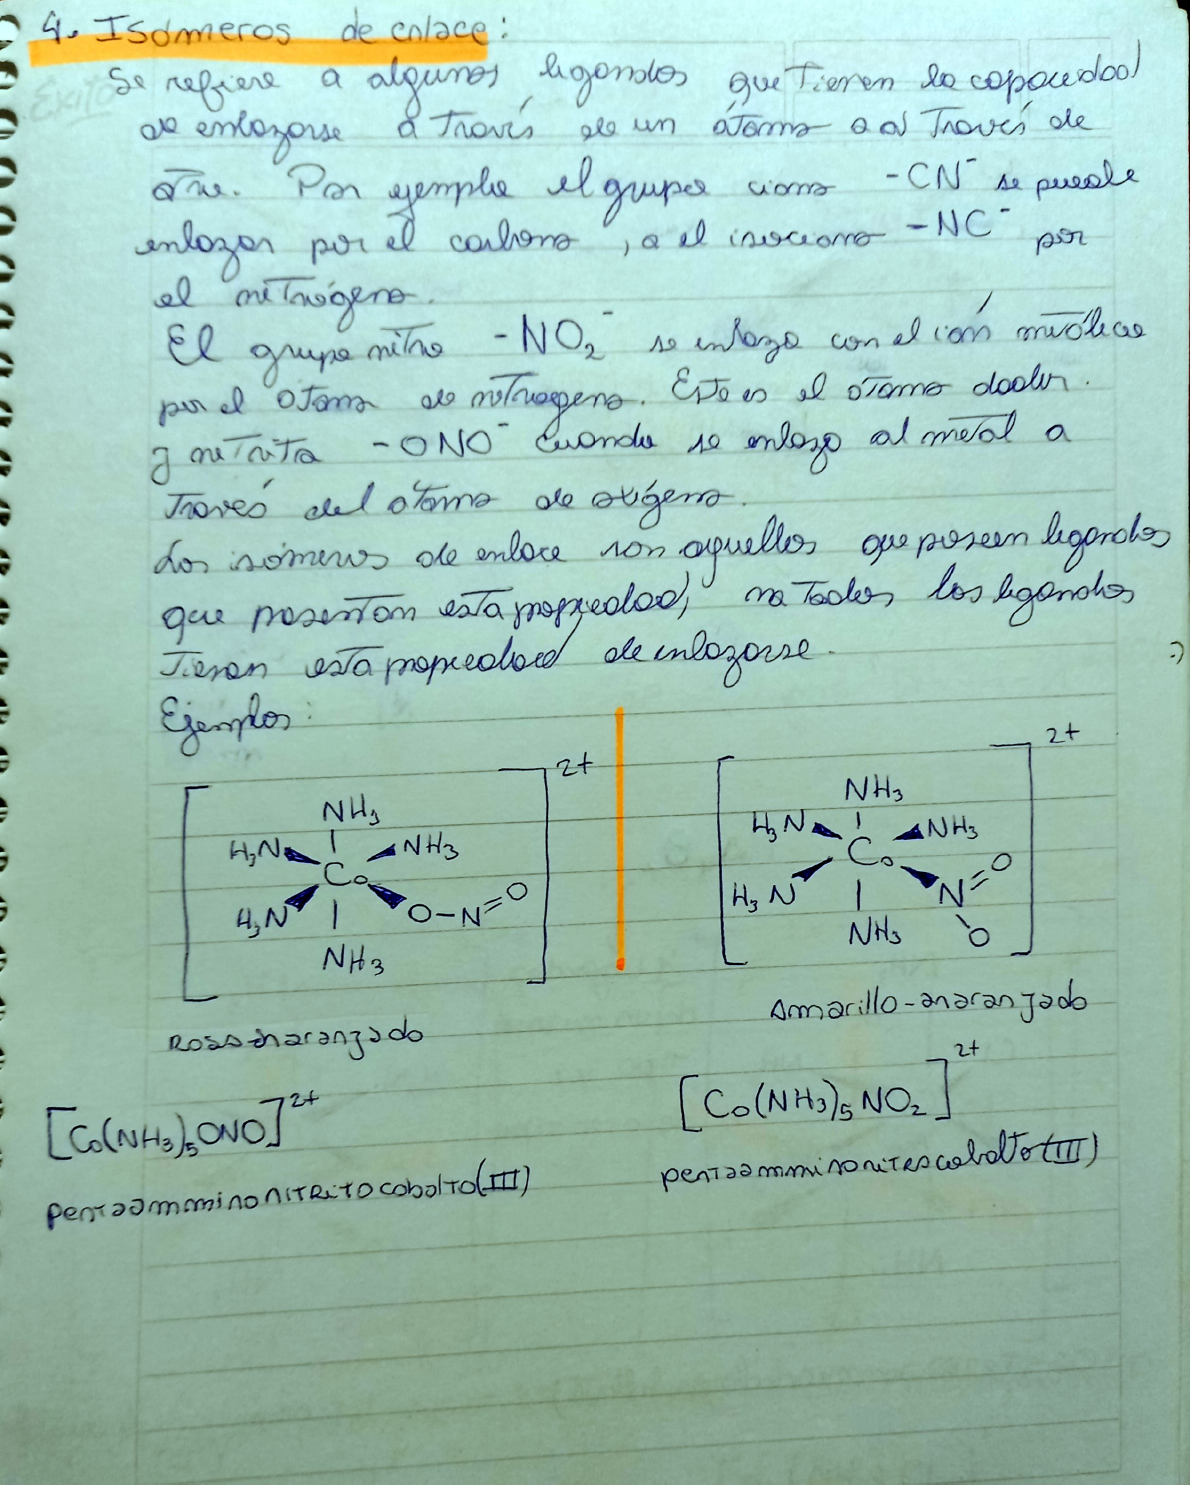 4. Isómeros de enlace:
Se refiere a algunos ligandos que tienen la capacidad
de enlazarse a través de un átomo o a través de
otro. Por ejemplo el grupo ciano -CN⁻ se puede
enlazar por el carbono, o el isociano -NC⁻ por
el nitrógeno.
El grupo nitro -NO₂⁻ se enlaza con el ión
por el átomo de nitrógeno. Este es el átomo dador.
y nitrito -ONO⁻ cuando se enlaza al metal a
través del átomo de oxígeno.
Los isómeros de enlace son aquellos que poseen ligandos
que presentan esta propiedad, no todos los ligandos
tienen esta propiedad de enlazarse.
:)
Ejemplos:
2+
NH₃
H₃N NH₃
Co
H₃N O-N=O
NH₃
Rosa-naranzado
[Co(NH₃)₅ONO]²⁺
pentaamminonitritocobalto(III)
2+
NH₃
H₃N NH₃
Co
H₃N N=O
NH₃ O
Amarillo-anaranjado
[Co(NH₃)₅NO₂]²⁺
pentaamminonitrocobalto(III)